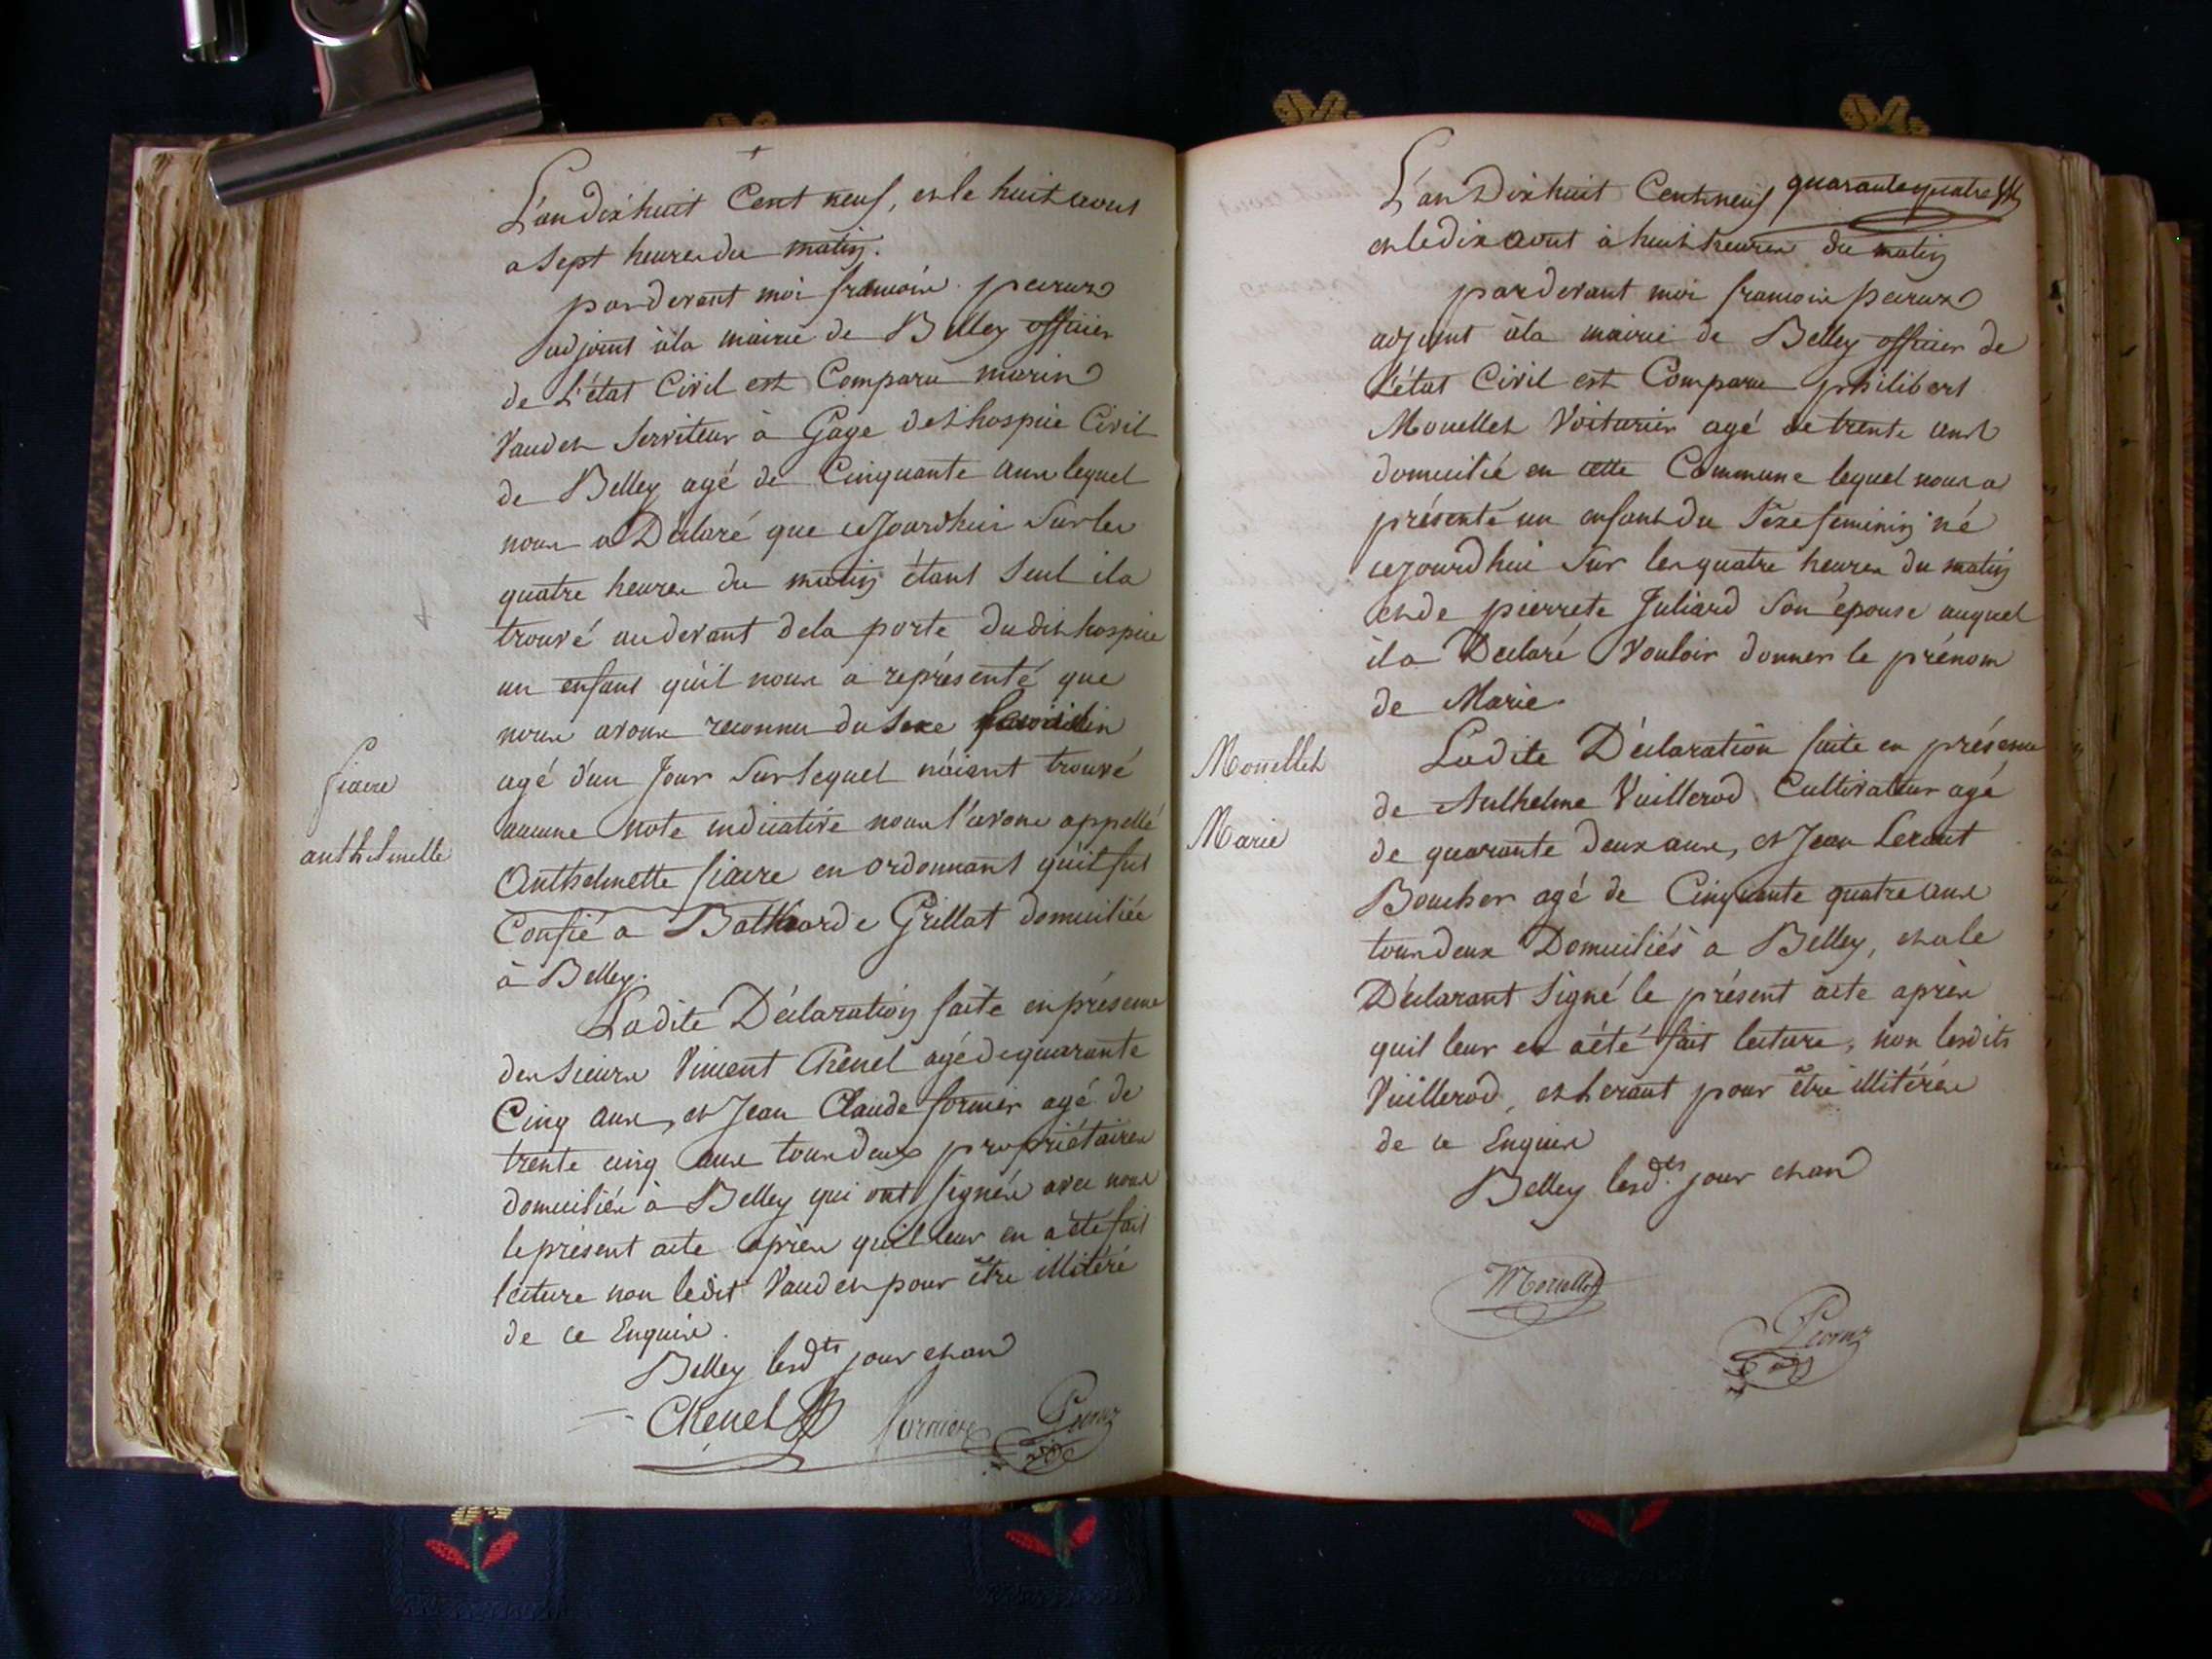 L'an dix huit Cent neuf, et le huit aout
a Sept heures du matin.
pardevant moi francois peiruz
adjoint à la mairie de Belley officier
de L'état Civil est Comparu marin
Vaudet Serviteur à Gage de Lhospice Civil
de Belley agé de Cinquante ans lequel
nous a Déclaré que cejourdhui Sur les
quatre heures du matin étant Seul il a
trouvé au devant de la porte dudit hospice
un enfant qu'il nous a représenté que
nous avons reconnu du Sexe
agé d'un Jour Sur lequel n'aiant trouvé
aucune note indicative nous l'avons appellé
Anthelmette fiacre en ordonnant qu'il fut
Confié a Baltharde Grillat domiciliée
à Belley.
Ladite Déclaration faite en présence
des Sieurs Vincent Chenel agé de quarante
Cinq ans, et Jean Claude fornier agé de
trente cinq ans tous deux propriétaires
domiciliés à Belley qui ont Signés avec nous
le présent acte après qu'il leur en a été fait
lecture non ledit Vaudet pour être illitéré
de ce Enquise.
Belley lesdts jour et an
Chenel fornier Peiruz
fiacre
anthelmette
quarante quatre
L'an Dix huit Cent neuf
et le dix aout à huit heures du matin
pardevant moi francois peiruz
adjoint à la mairie de Belley officier de
L'état Civil est Comparu philibert
Mouellet Voiturier agé de trente ans
domicilié en cette Commune lequel nous a
présenté un enfant du Sexe feminin né
cejourdhui Sur les quatre heures du matin
et de pierrete Juliard Son épouse auquel
il a Déclaré Vouloir donner le prénom
de Marie.
Ladite Déclaration faite en présence
de Anthelme Vuillerod Cultivateur agé
de quarante deux ans, et Jean Lerout
Boucher agé de Cinquante quatre ans
tous deux Domiciliés a Belley, et a le
Déclarant Signé le présent acte après
quil leur en a été fait lecture, non lesdits
Vuillerod, et Lerout pour être illitérés
de ce Enquise
Belley lesdts jour et an
Mouellet
Peiruz
adj
Mouellet
Marie